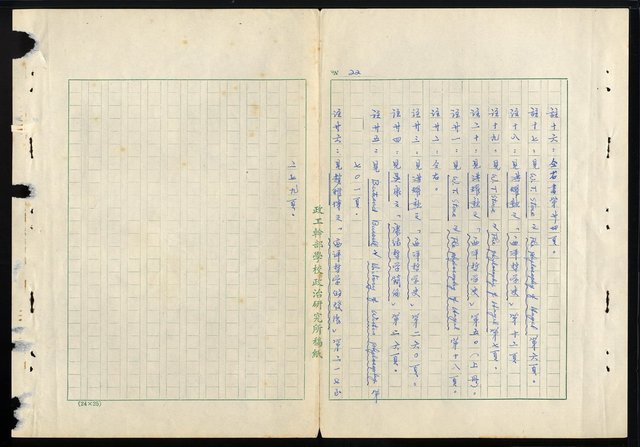 No. 22
註十六：仝右書第十四頁。
註十七：見 W.T. Stace of The philosophy of Hegel 第六頁。
註十八：見洪耀勳著「西洋哲學史」第十三頁。
註十九：見 W.T. Stace of The philosophy of Hegel 第七頁。
註二十：見洪耀勳著「西洋哲學史」第五〇（上冊）。
註廿一：見 W.T. Stace of The philosophy of Hegel 第十八頁。
註廿二：仝右。
註廿三：見洪耀勳著「西洋哲學史」第二六〇頁。
註廿四：見吳康著「康德哲學簡編」第三六頁。
註廿五：見 Bertrand Russell of History of Western philosophy 第
七〇一頁。
註廿六：見趙雅博著「西洋哲學的發展」第二一五至
政工幹部學校政治研究所稿紙
頁。
(24×25)